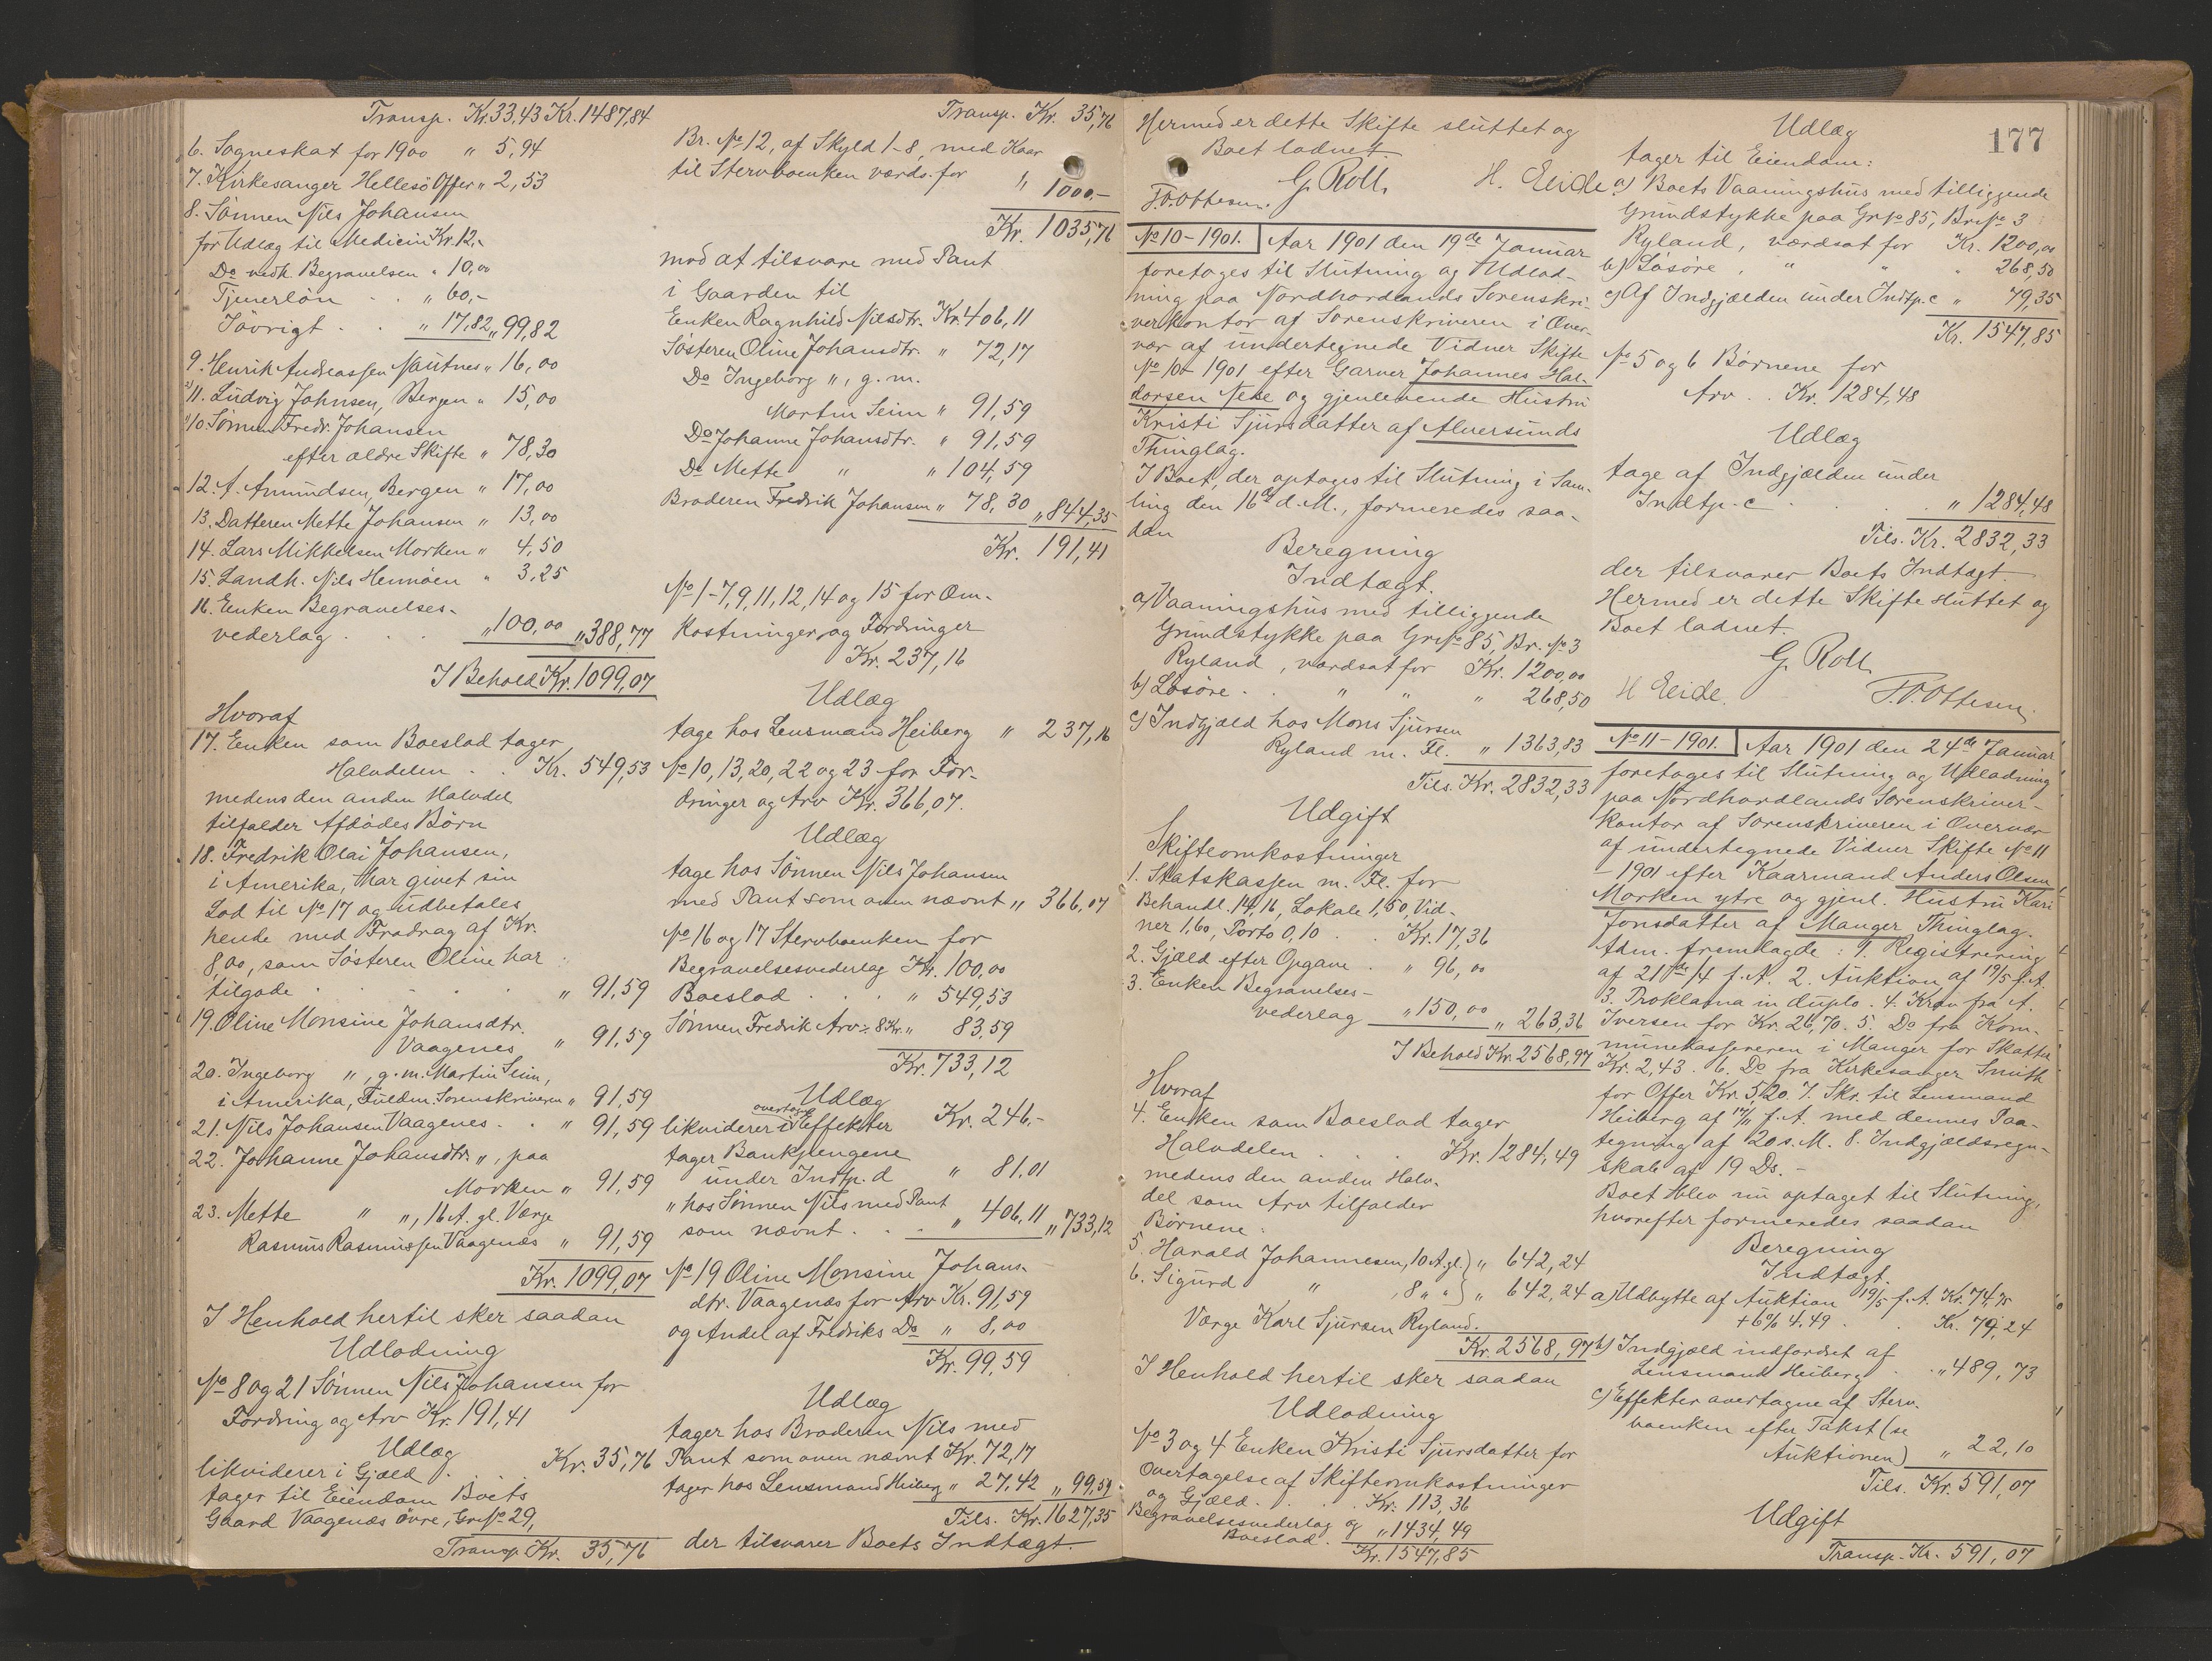 Transp. Kr. 33,43 Kr. 1487,84
6. Sogneskat for 1900 " 5,94
7. Kirkesanger Hellesö Offer " 2,53
8. Sönnen Nils Johansen
for Udlæg til Medicin Kr. 12,-
Do vedk. Begravelsen " 10,00
Tjenerlön . . " 60,-
Iövrigt . . " 17,82 " 99,82
9. Henrik Andreassen Nautnes " 16,00
11. Ludvig Johnsen, Bergen " 15,00
10. Sönnen Fredr. Johansen
efter ældre Skifte " 78,30
12. A. Amundsen, Bergen " 17,00
13. Datteren Mette Johansen " 13,00
14. Lars Mikkelsen Morken " 4,50
15. Landh. Nils Hennöen " 3,25
16. Enken Begravelses-
vederlag . . . " 100,00 " 388,77
I Behold Kr. 1099,07
Hvoraf
17. Enken som Boeslod tager
Halvdelen . . Kr. 549,53
medens den anden Halvdel
tilfalder Afdödes Börn
18. Fredrik Olai Johansen,
i Amerika, har givet sin
Lod til No 17 og udbetales
hende med Fradrag af Kr.
8,00, som Sösteren Oline har
tilgode . . . . " 91,59
19. Oline Monsine Johansdtr.
Vaagenes " 91,59
20. Ingeborg " , g. m. Martin Seim,
i Amerika, Fuldm. Sorenskriveren " 91,59
21. Nils Johansen Vaagenes . . " 91,59
22. Johanne Johansdtr. " , paa
Morken " 91,59
23. Mette " " , 16 A. gl. Værge
Rasmus Rasmussen Vaagenæs " 91,59
Kr. 1099,07
I Henhold hertil sker saadan
Udlodning
No 8 og 21 Sönnen Nils Johansen for
Fordring og Arv Kr. 191,41
Udlæg
likviderer i Gjæld . . . Kr. 35,76
tager til Eiendom Boets
Gaard Vaagenæs övre, Gr. No 29,
Transp. Kr. 35,76
Transp. Kr. 35,76
Br. No 12, af Skyld 1-8, med Kaar
til Stervboenken værds. for " 1000.-
Kr. 1035,76
mod at tilsvare med Pant
i Gaarden til
Enken Ragnhild Nilsdtr. Kr. 406,11
Sösteren Oline Johansdtr. " 72,17
Do Ingeborg " , g. m.
Martin Seim " 91,59
Do Johanne Johansdtr. " 91,59
Do Mette " " 104,59
Broderen Fredrik Johansen " 78,30 " 844,35
Kr. 191,41
No 1-7, 9, 11, 12, 14 og 15 for Om-
kostninger og Fordringer
Kr. 237,16
Udlæg
tage hos Lensmand Heiberg " 237,16
No 10, 13, 20, 22 og 23 for For-
dringer og Arv Kr. 366,07.
Udlæg
tage hos Sönnen Nils Johansen
med Pant som oven nævnt " 366,07
No 16 og 17 Stervboenken for
Begravelsesvederlag Kr. 100,00
Boeslod . . . " 549,53
Sönnen Fredrik Arv ÷ 8 Kr. " 83,59
Kr. 733,12
Udlæg
likviderer i overtagne Effekter Kr. 246.-
tager Bankpengene
under Indtp. d " 81,01
" hos Sönnen Nils med Pant
som nævnt . . " 406,11 " 733,12
No 19 Oline Monsine Johans-
dtr. Vaagenæs for Arv Kr. 91,59
og Andel af Fredriks Do " 8,00
Kr. 99,59
Udlæg
tager hos Broderen Nils med
Pant som oven nævnt Kr. 72,17
tager hos Lensmand Heiberg " 27,42 " 99,59
Tils. Kr. 1627,35
der tilsvarer Boets Indtægt.
Hermed er dette Skifte sluttet og
Boet lodnet.
G. Roll.
F. O. Ottesen. H. Eeide.
No 10-1901. Aar 1901 den 19de Januar
foretoges til Slutning og Udlod-
ning paa Nordhordlands Sorenskri-
verkontor af Sorenskriveren i Over-
vær af undertegnede Vidner Skifte
No 10-1901 efter Garver Johannes Hal-
dorsen Nese og gjenlevende Hustru
Kristi Sjursdatter af Alversunds
Thinglag.
I Boet, der optoges til Slutning i Sam-
ling den 16de d. M., formeredes saa-
dan
Beregning
Indtægt.
a) Vaaningshus med tilliggende
Grundstykke paa Gr. No 85, Br. No 3
Ryland, værdsat for Kr. 1200,00
b) Lösöre . . " " " 268,50
c) Indgjæld hos Mons Sjursen
Ryland m. Fl. " 1363,83
Tils. Kr. 2832,33
Udgift
Skifteomkostninger
1. Statskassen m. Fl. for
Behandl. 14,16, Lokale 1,50, Vid-
ner 1,60, Porto 0,10 . . Kr. 17,36
2. Gjæld efter Opgave . " 96,00
3. Enken Begravelses-
vederlag " 150,00 " 263,36
I Behold Kr. 2568,97
Hvoraf
4. Enken som Boeslod tager
Halvdelen . . . Kr. 1284,49
medens den anden Halv-
del som Arv tilfalder
Börnene:
5. Harald Johannesen, 10 A. gl. " 642,24
6. Sigurd " , 8 " " " 642,24
Værge Karl Sjursen Ryland.
Kr. 2568,97
I Henhold hertil sker saadan
Udlodning
No 3 og 4 Enken Kristi Sjursdatter for
Overtagelse af Skifteomkostninger
og Gjæld . . . Kr. 113,36
Begravelsesvederlag og " 1434,49
Boeslod . Kr. 1547,85
177
Udlæg
tager til Eiendom:
a) Boets Vaaningshus med tilliggende
Grundstykke paa Gr. No 85, Br. No 3
Ryland, værdsat for Kr. 1200,00
b) Lösöre , " " " 268,50
c) Af Indgjælden under Indtp. c " 79,35
Kr. 1547,85
No 5 og 6 Börnene for
Arv . . Kr. 1284,48
Udlæg
tage af Indgjælden under
Indtp. c . . . . " 1284,48
Tils. Kr. 2832,33
der tilsvarer Boets Indtægt.
Hermed er dette Skifte sluttet og
Boet lodnet.
G. Roll
H Eeide. F. O. Ottesen.
No 11-1901. Aar 1901 den 24de Januar
foretoges til Slutning og Udlodning
paa Nordhordlands Sorenskriver-
kontor af Sorenskriveren i Overvær
af undertegnede Vidner Skifte No 11
-1901 efter Kaarmand Anders Olsen
Morken ytre og gjenl. Hustru Kari
Jonsdatter af Manger Thinglag.
Adm. fremlagde: 1. Registrering
af 21de/4 f. A. 2. Auktion af 19/5 f. A.
3. Proklama in duplo. 4. Krav fra A.
Iversen for Kr. 26,70. 5. Do fra Kom-
munekassereren i Manger for Skatter
Kr. 2,43. 6. Do fra Kirkesanger Smith
for Offer Kr. 5,20. 7. Skr. til Lensmand
Heiberg af 17/11 f. A. med dennes Paa-
tegning af 20 s. M. 8. Indgjældsregn-
skab af 19 Ds. -
Boet blev nu optaget til Slutning,
hvorefter formeredes saadan
Beregning
Indtægt.
a) Udbytte af Auktion 19/5 f. A. Kr. 74,75
+ 6% 4,49 . . Kr. 79,24
b) Indgjæld indfordret af
Lensmand Heiberg . . " 489,73
c) Effekter overtagne af Sterv-
boenken efter Takst (se
Auktionen) " 22,10
Tils. Kr. 591,07
Udgift
Transp. Kr. 591,07